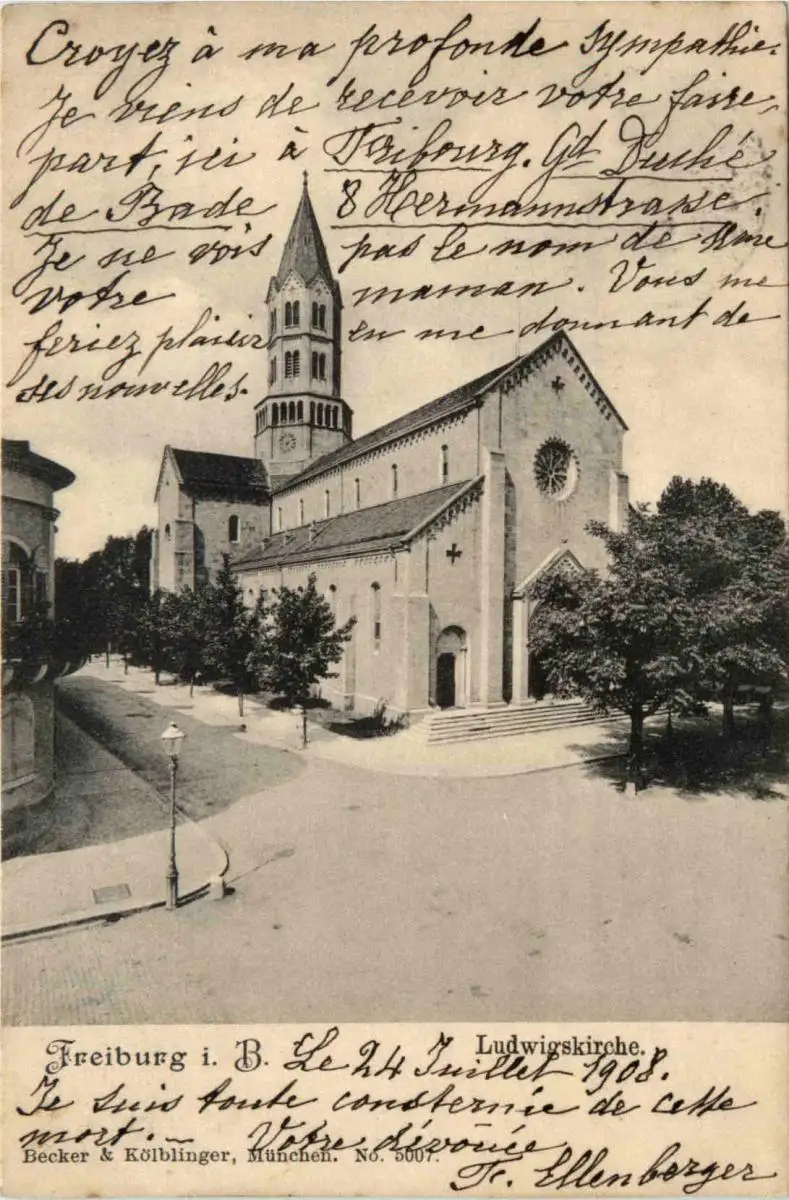 Croyez à ma profonde sympathie.
Je viens de recevoir votre faire
part, ici à Fribourg. Gd Duché
de Bade 8 Hermannstrasse.
Je ne vois pas le nom de Mme
votre maman. Vous me
feriez plaisir en me donnant de
ses nouvelles.
Freiburg i. B. Ludwigskirche.
Le 24 Juillet 1908.
Je suis toute consternée de cette
mort. — Votre dévouée
Becker & Kölblinger, München. No. 5007.
F. Ellenberger